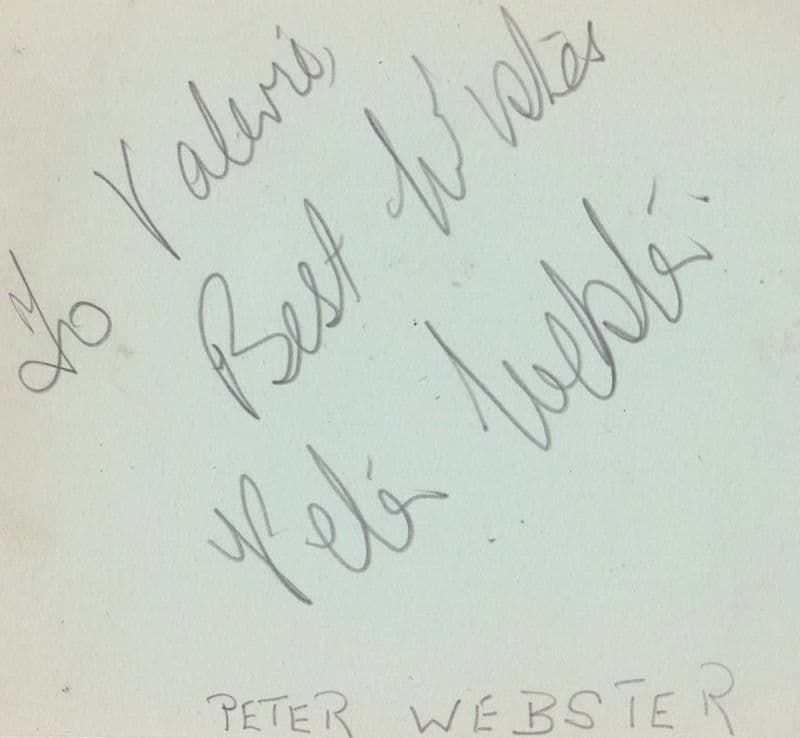 To Valerie
Best Wishes
Peter Webster
PETER WEBSTER